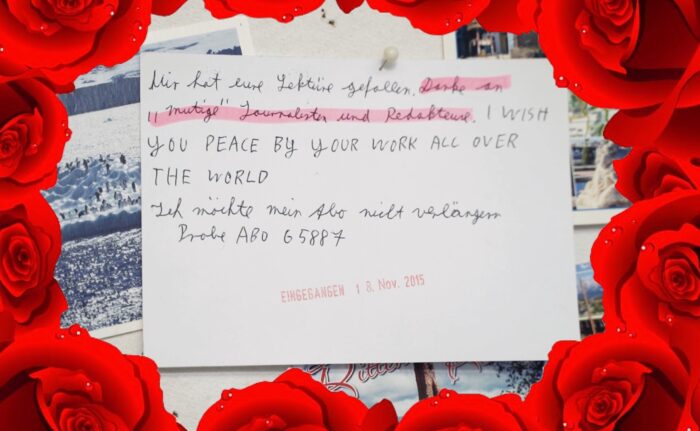 Mir hat eure Lektüre gefallen. Danke an
"mutige" Journalisten und Redakteure. I WISH
YOU PEACE BY YOUR WORK ALL OVER
THE WORLD
Ich möchte mein Abo nicht verlängern
Probe ABO 65887
EINGEGANGEN 18. Nov. 2015